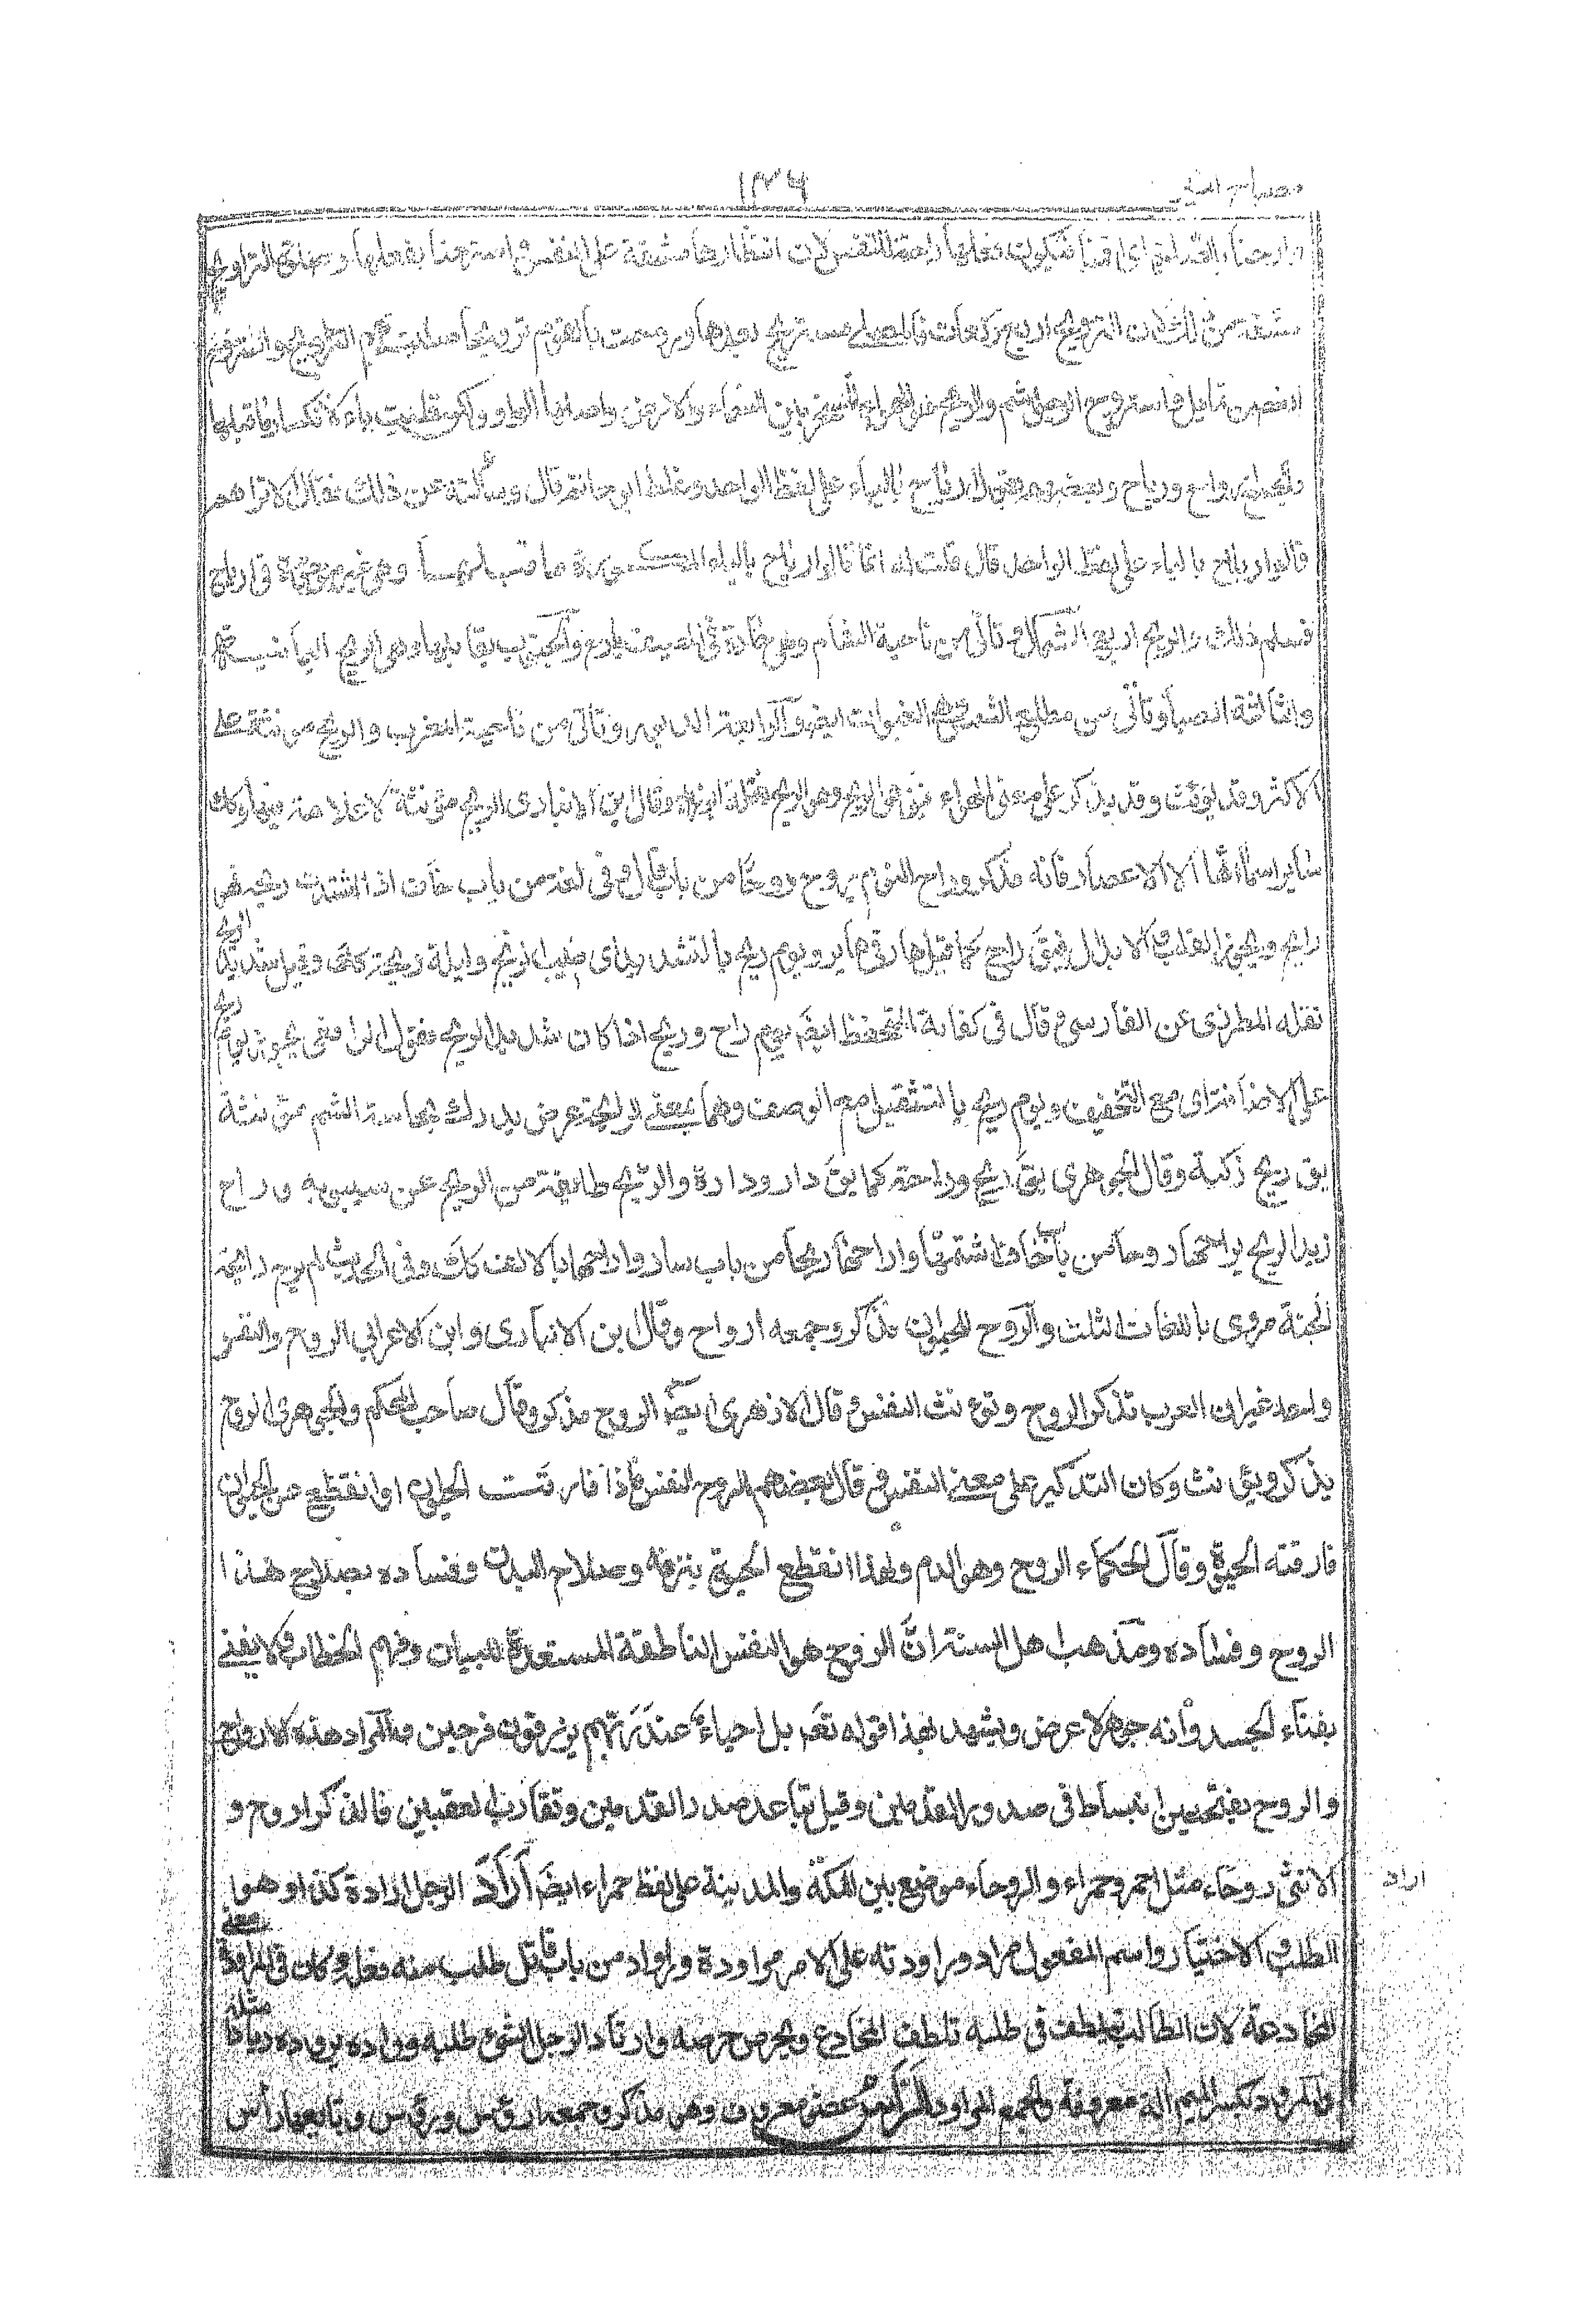 مصباح المنير
١٣٦
ارحنا بالصلوة اى اقمنا فيكون فعلها راحة للنفس لان انتظارها مشقة على النفس و استرحنا بفعلها وصلوة التراويح
مشتقة من ذلك لان الترويحة اربع ركعات فالمصلى يستريح بعدها وروحت بالقوم ترويحا صليت بهم التراويح واستروح
الغصن تمايل و استروح الرجل شم والريح الهواء المسخر بين السماء والارض واصلها الواو ولكن قلبت ياء لانكسار ما قبلها
والجمع ارواح ورياح وبعضهم يقول ارياح بالياء على لفظ الواحد وغلطه ابو حاتم قال وسألته عن ذلك فقال الا تراهم
قالوا رياح بالياء على لفظ الواحد قال قلت له انما قالوا رياح بالياء للكسرة وهى غير موجودة فى ارياح
فسلم ذلك والريح اربع الشمال و تأتى من ناحية الشام وهى حارة فى الصيف بارح والجنوب يقابلها وهى الريح اليمانية
والثالثة الصبا وتأتى من مطلع الشمس وهى القبول ايضا والرابعة الدبور وتأتى من ناحية المغرب والريح مؤنثة على
الاكثر وقد يذكر على معنى الهواء فيق هو الريح وهى الريح نقله ابو زيد وقال ابن الانبارى الريح مؤنثة لا علامة فيها وكك
سائر اسمائها الا الاعصار فانه مذكر وراح اليوم يروح روحا من باب قال و فى لغة من باب خاف اذا اشتدت ريحه فهو
رايح ويجوز القلب و الابدال فيق راح كما قيل هار فى هاير ويوم ريح بالتشديد اى طيب الريح وليلة ريحة كك وقيل شديد الريح
نقله المطرزى عن الفارسى و قال فى كفاية المتحفظ ايضا يوم راح وريح اذا كان شديد الريح فقول الرافعى يجوز يوم ريح
على الاضافة اى مع التخفيف ويوم ريح بالتثقيل مع الوصف وهما بمعنى والرايحة عرض يدرك بحاسة الشم مؤنثة
يق ريح ذكية وقال الجوهرى يق ريح وراحة كما يق دار ودارة والريح طايفة من الريح عن سيبويه وراح
زيد الريح يراحها روحا من باب خاف اشتمها واراحها ريحا من باب سار واراحها بالالف كك وفى الحديث لم يرح رائحة
الجنة مروى باللغات الثلث والروح للحيوان مذكر وجمعه ارواح وقال ابن الانبارى وابن الاعرابى الروح والنفس
واحد غير ان العرب تذكر الروح وتؤنث النفس و قال الازهرى ايضا الروح مذكر وقال صاحب المحكم والجوهرى الروح
يذكر ويؤنث وكان التذكير على معنى النفس و قال بعضهم الروح النفس فاذا فارقت الحيوان او انقطع عن الحيوان
فارقته الحيوة وقال الحكماء الروح وهو الدم ولهذا انقطع الحيوة بنزفه وصلاح البدن وفساده بصلاح هذا
الروح وفساده ومذهب اهل السنة ان الروح هو النفس الناطقة المستعدة للبيان وفهم الخطاب و لا يفنى
بفناء الجسد وانه جوهر لا عرض ويشهد لهذا قوله تعم بل احياء عند ربهم يرزقون فرحين والمراد هذه الارواح
والروح بفتحتين انبساط فى صدور القدمين وقيل تباعد صدر القدمين وتقارب العقبين فالذكر اروح و
الانثى روحاء مثل احمر وحمراء والروحاء موضع بين المكة والمدينة على لفظ حمراء ايضا أراد الرجل ارادة كذا وهو
الطلب و الاختيار واسم المفعول مراد وراودته على الامر مراودة ورواد من باب قاتل طلبت منه فعله و كان فى المراودة معنى
المخادعة لان الطالب يتلطف فى طلبه تلطف المخادع ويحرص حرصه وارتاد الرجل الشئ طلبه وراده يروده ريادا مثله
والمرود بكسر الميم آلة معروفة والجمع المراود الرأس عضو معروف وهو مذكر وجمعه ارؤس ورؤس وبايعها رأس
اراد